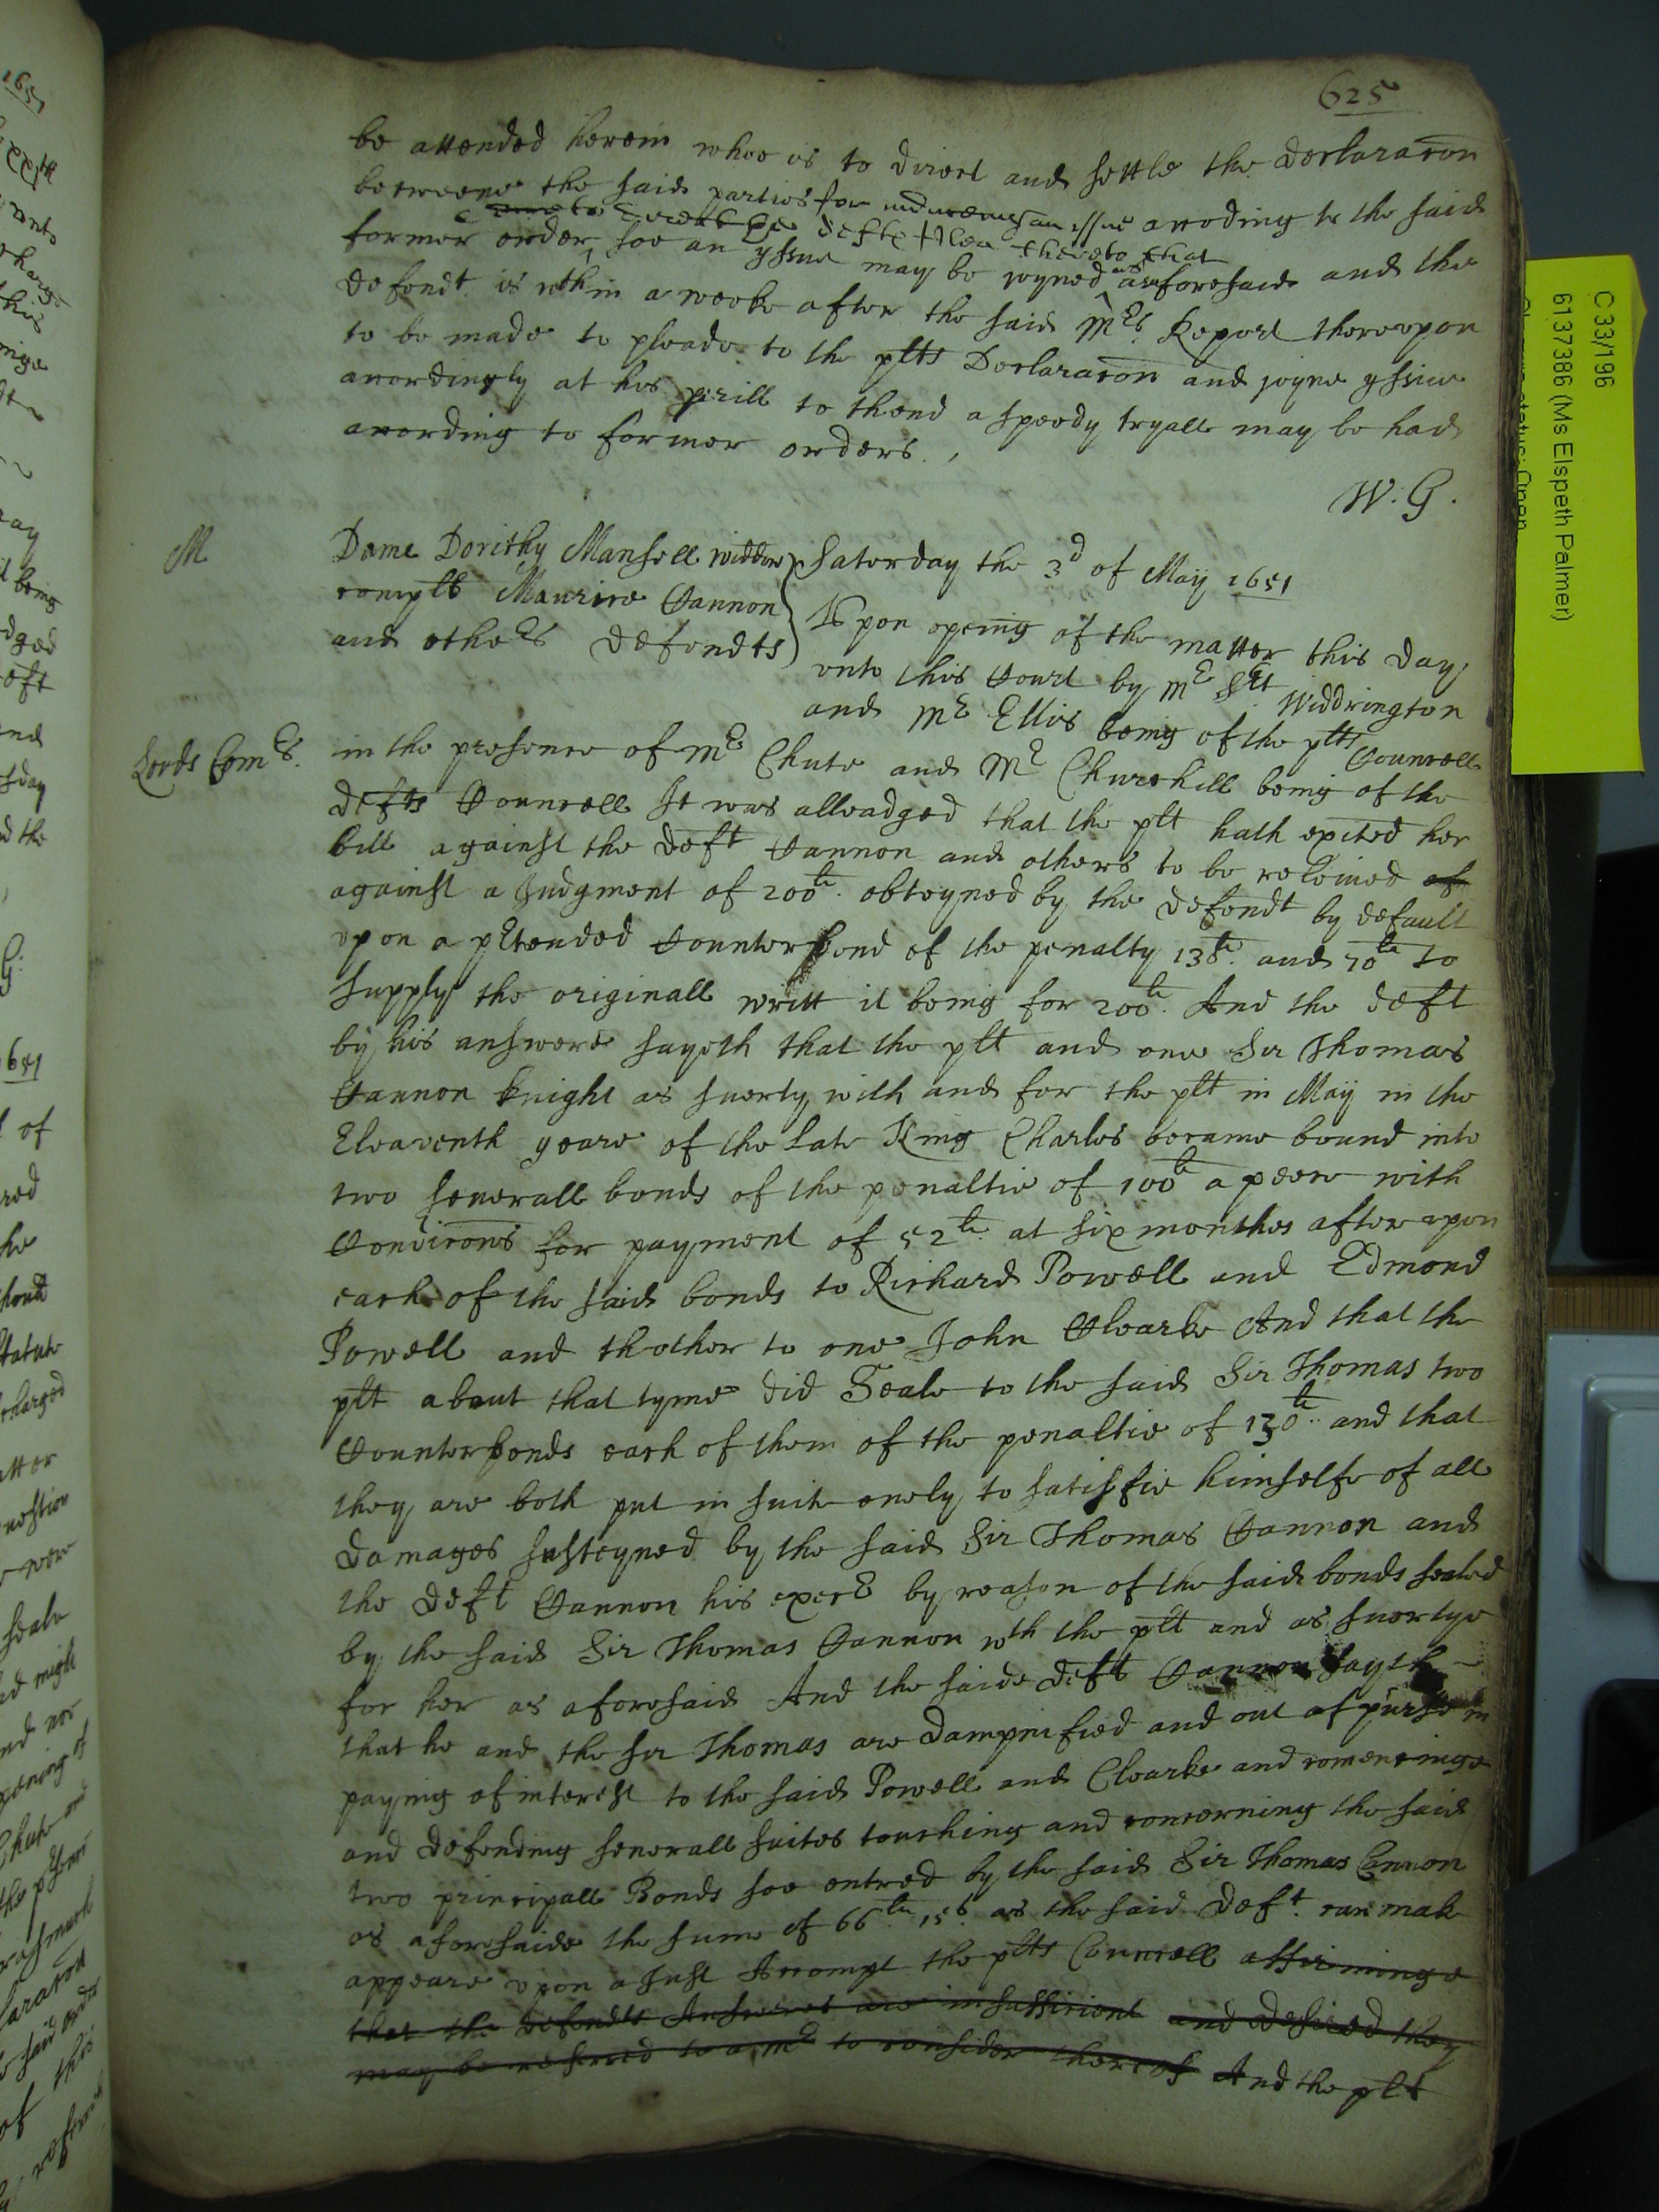 625
be attended herein whoe is to direct and settle the declaracon
betweene the said parties for induceing an issue accoding to the said
former order, soe an yssue may be joyned as aforesaid and the
deft thereto that
defendt is wthin a weeke after the said Mrs Report thereupon
to be made to pleade to the plts Declaracon and joyne yssue
accordingly at his perill to thend a speedy tryall may be had
according to former orders.,
W. G.
M
Dame Dorithy Mansell widdow
complt Maurice Cannon
and others Defendts
Saterday the 3d of Maij 1651
Upon opening of the matter this day
unto this Court by Mr Srt Widdrington
and Mr Ellis being of the plts Councell
Lords Comrs.
in the presence of Mr Chute and Mr Churchill being of the
Defts Councell It was alleadged that the plt hath exited her
bill against the Deft Cannon and others to be releived of
against a Judgment of 200li. obteyned by the defendt by default
upon a prtended Counterbond of the penalty 130li. and 70li to
supply the originall writt it being for 200li. And the deft
by his answere sayeth that the plt and one Sir Thomas
Cannon knight as suerty with and for the plt in Maij in the
Eleaventh yeare of the late King Charles became bound into
two severall bonds of the penaltie of 100li a peece with
Condicons for payment of 52li. at six monthes after upon
each of the said bonds to Richard Powell and Edmond
Powell and thother to one John Clearke And that the
plt about that tyme did Seale to the said Sir Thomas two
Counterbonds each of them of the penaltie of 130li. and that
they are both put in suite onely to satisfie himselfe of all
Damages susteyned by the said Sir Thomas Cannon and
the Deft Cannon his exer by reason of the said bonds sealed
by the said Sir Thomas Cannon wth the plt and as suertye
for her as aforesaid And the saide deft Cannon sayeth
that he and the Sir Thomas are dampnified and out of purse in
paying of interest to the said Powell and Clearke and comenceinge
and defending severall suites touching and concerning the said
two principall Bonds soe entred by the said Sir Thomas Cannon
as aforesaide the sume of 66li. 15s. as the said Deft. can make
appeare upon a Just Accompt the plts Councell affirminge
that the Defendts Answeres are insufficient and desired they
may be referred to a Mr to consider thereof And the plt
C 33/196
6137386 (Ms Elspeth Palmer)